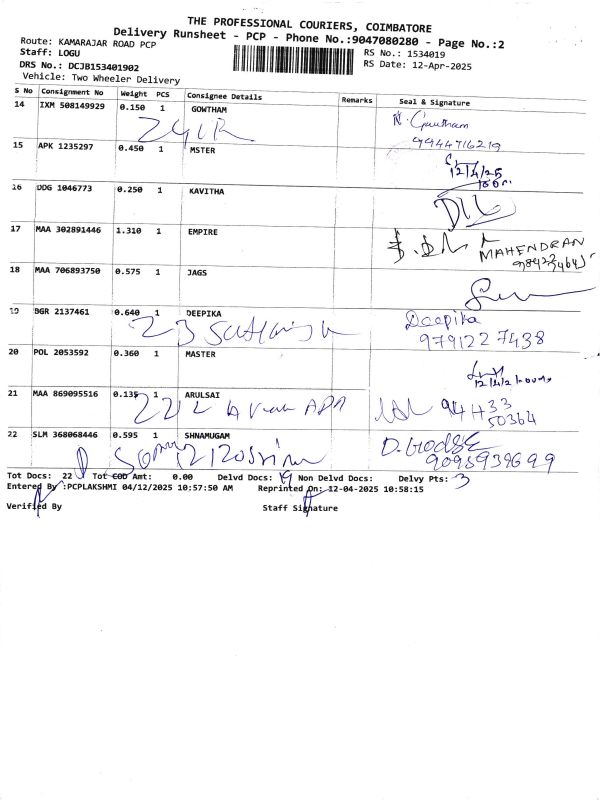 THE PROFESSIONAL COURIERS, COIMBATORE
Delivery Runsheet - PCP - Phone No.:9047080280 - Page No.:2
Route: KAMARAJAR ROAD PCP
Staff: LOGU
RS No.: 1534019
DRS No.: DCJB153401902
RS Date: 12-Apr-2025
Vehicle: Two Wheeler Delivery
S No Consignment No Weight PCS Consignee Details Remarks Seal & Signature
14 IXM 508149929 0.150 1 GOWTHAM
N. Gowtham
9944716219
15 APK 1235297 0.450 1 MSTER
12/4/25
16 DDG 1046773 0.250 1 KAVITHA
17 MAA 302891446 1.310 1 EMPIRE
MAHENDRAN
18 MAA 706893750 0.575 1 JAGS
19 BGR 2137461 0.640 1 DEEPIKA
Deepika
9791227438
20 POL 2053592 0.360 1 MASTER
21 MAA 869095516 0.135 1 ARULSAI
94433
50364
22 SLM 368068446 0.595 1 SHNAMUGAM
Tot Docs: 22 Tot COD Amt: 0.00 Delvd Docs: 19 Non Delvd Docs: Delvy Pts: 3
Entered By :PCPLAKSHMI 04/12/2025 10:57:50 AM Reprinted On: 12-04-2025 10:58:15
Verified By Staff Signature